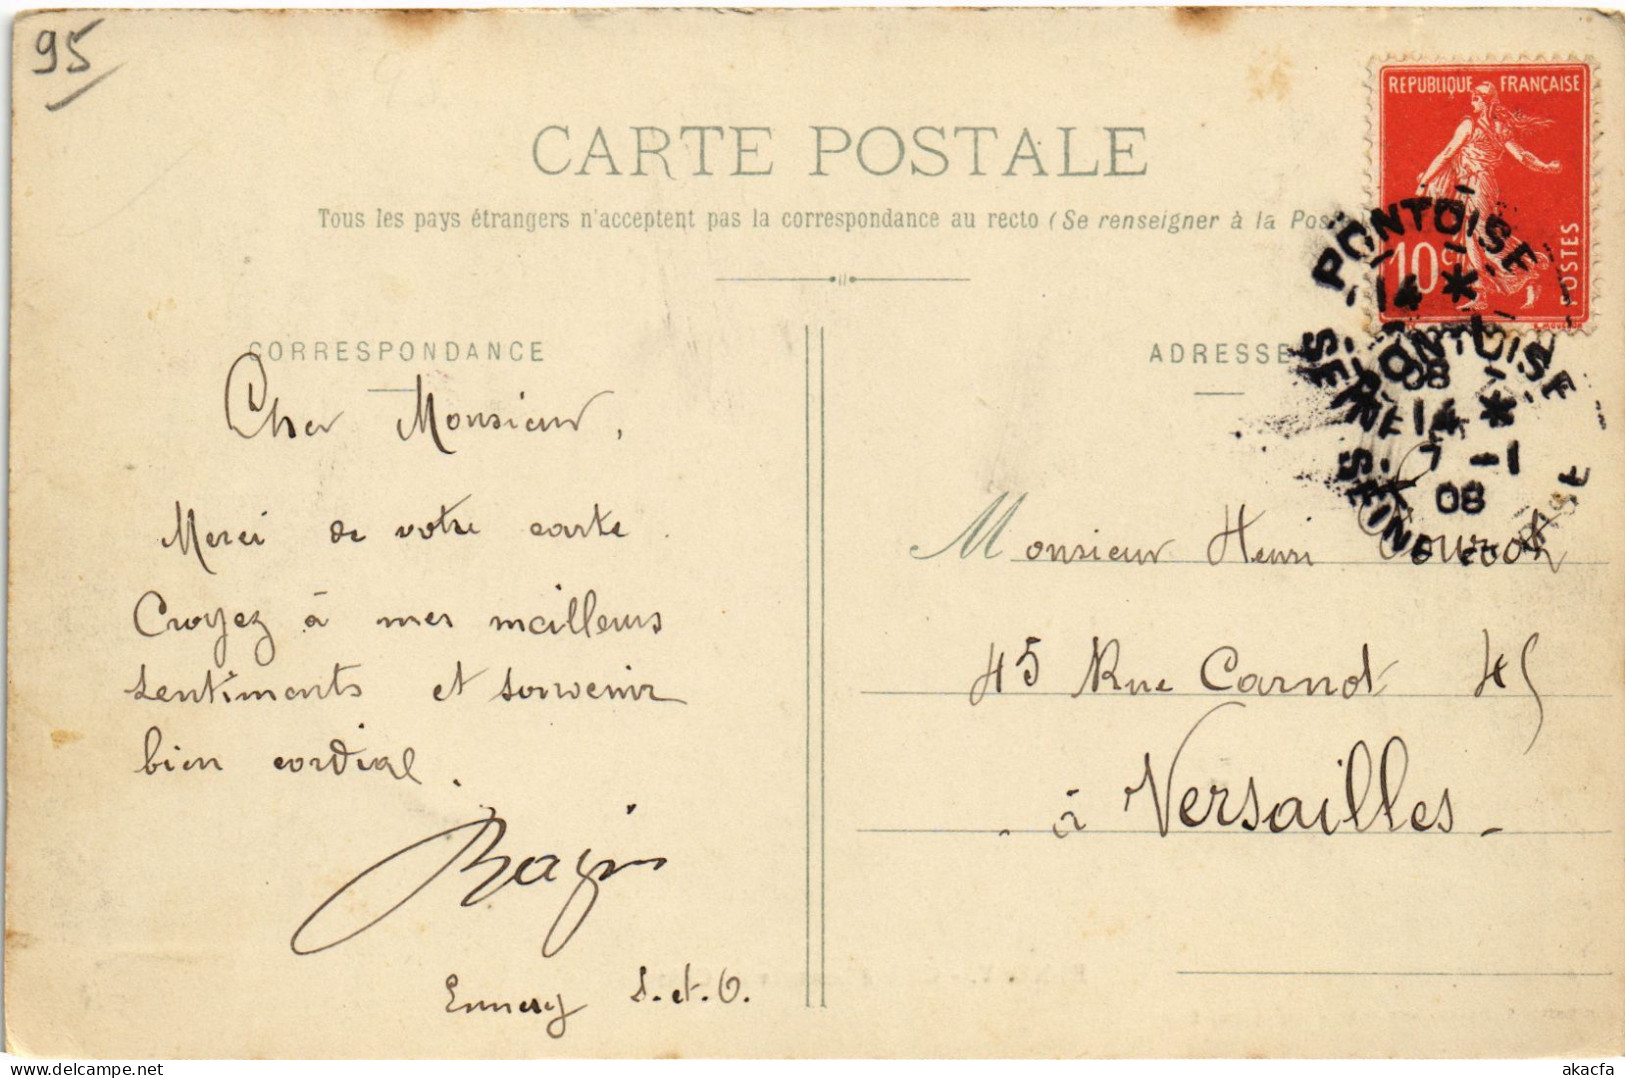 95
CARTE POSTALE
Tous les pays étrangers n'acceptent pas la correspondance au recto (Se renseigner à la Poste
REPUBLIQUE FRANÇAISE
10 c
POSTES
PONTOISE
14 *
08
SEINE
PONTOISE
14 *
7 - 1
08
SEINE ET OISE
CORRESPONDANCE
Cher Monsieur,
Merci de votre carte.
Croyez à mes meilleurs
sentiments et souvenir
bien cordial.
Ennery S.-et.O.
ADRESSE
Monsieur Henri
45 Rue Carnot 45
- à Versailles -
akacfa
www.delcampe.net